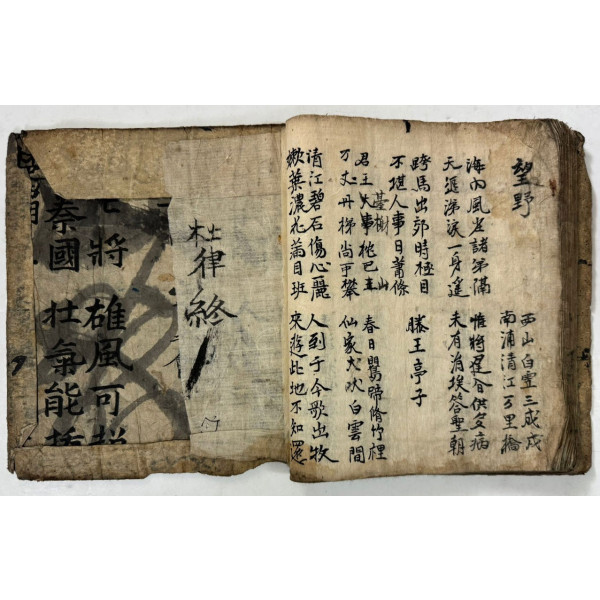 望野
西山白雪三成戍
南浦清江万里橋
海內風尘諸弟隔
天涯涕淚一身遙
惟將遲暮供多病
未有涓埃答聖朝
跨馬出郊時極目
不堪人事日蕭條
滕王亭子
臺榭
君王大事枕巴山
万丈丹梯尚可攀
春日鸎啼脩竹裡
仙家犬吠白雲間
清江碧石傷心麗
嫩葉濃花滿目班
人到于今歌出牧
來遊此地不知還
杜律終
將雄風可
秦國壯氣能